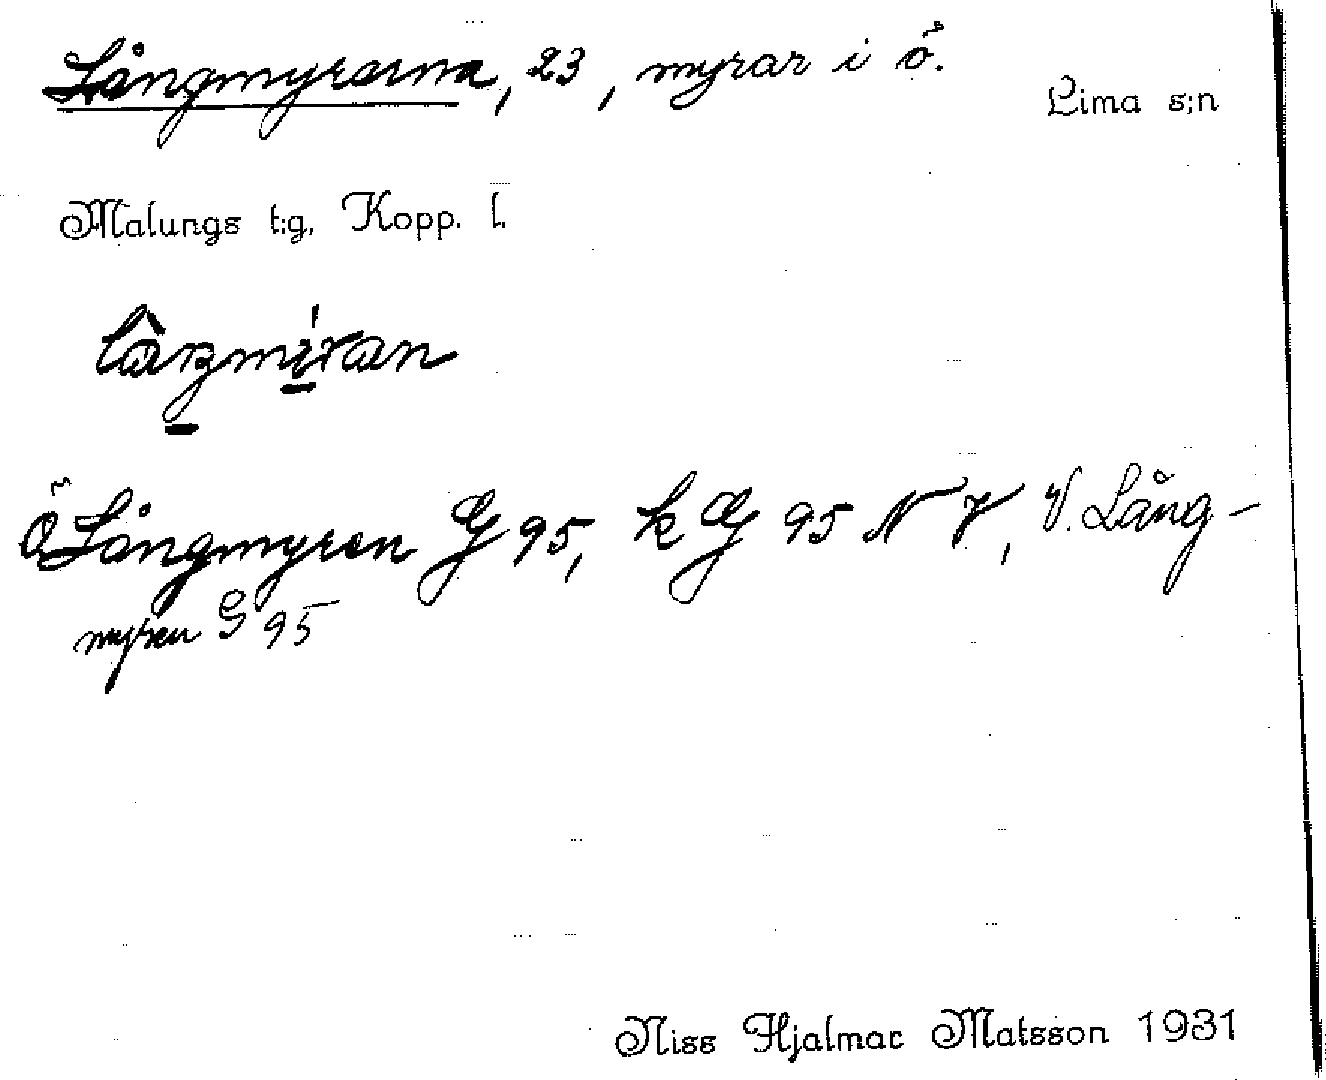 Långmyrarna, 23, myrar i ö.
Lima s:n
Malungs t:g, Kopp. l.
Ö Långmyren G 95, k G 95 N V, V. Lång-
myren G 95
Niss Hjalmar Matsson 1931